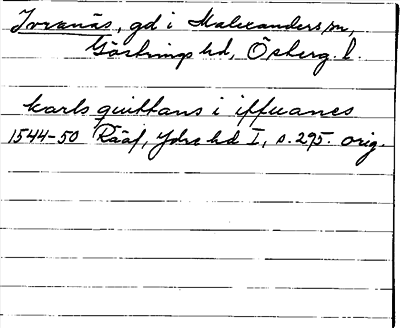 Ivranäs, gd i Malexanders sn,
Göstrings hd, Österg. l.
karls quittans i iffuanes
1544-50 Rääf, Ydre hd I, s. 295. orig.